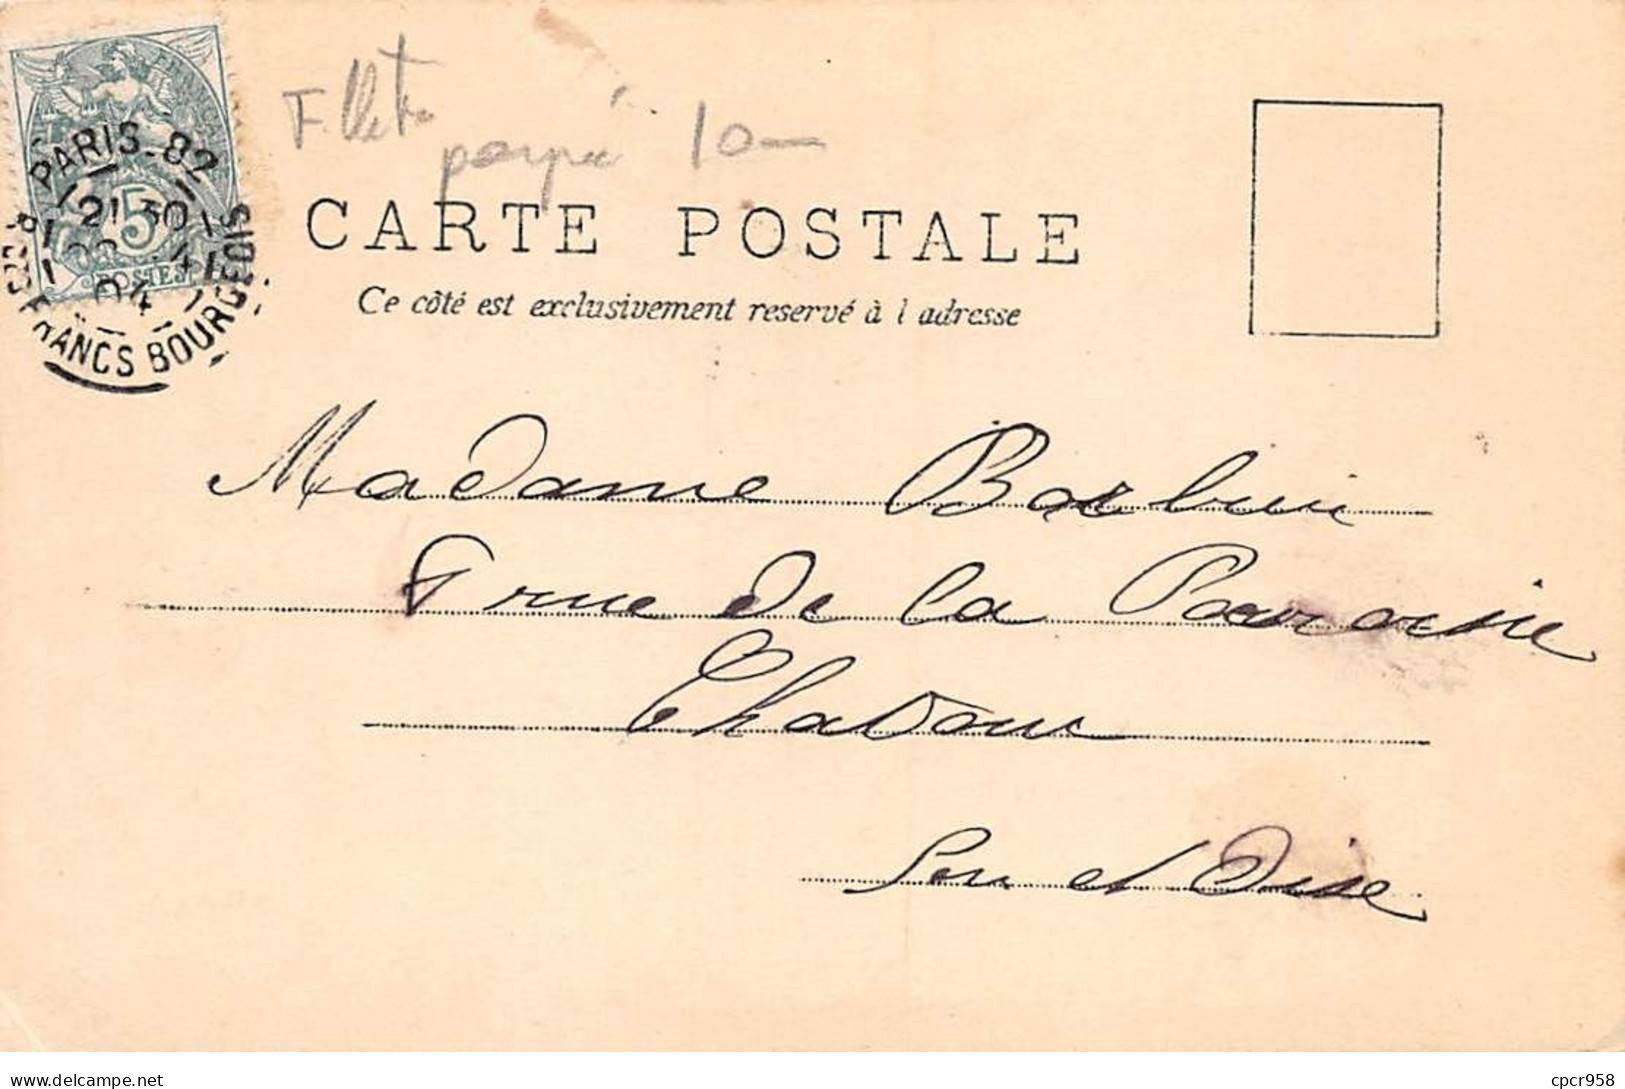 FRANÇAISE
5
POSTES
PARIS. 82
21 30
4
04
R. DES FRANCS BOURGEOIS
Fillette
poupée 10-
CARTE POSTALE
Ce côté est exclusivement reservé à l adresse
Madame Barbier
rue de la
Chatou
Seine et Oise
delcampe.net
cpcr958